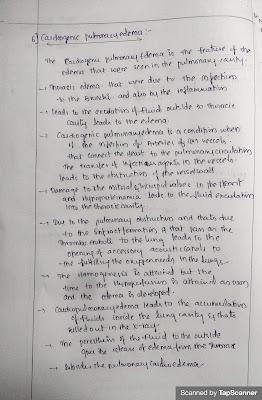 6) Cardiogenic pulmonary edema :-
The Cardiogenic pulmonary Edema is the feature of the
edema that were seen in the pulmonary cavity.
→ Thoracic edema that were due to the infection
to the Bronchi and also by the inflammation
→ leads to the exudation of fluid outside to thoracic
cavity leads to the edema.
→ Cardiogenic pulmonary edema is a condition when
if the infection of arteries of its vessels
that connect the heart to the pulmonary circulation
the transfer of infectious agents in the vessels
leads to the obstruction of the vessel wall
→ Damage to the mitral & tricuspid valves in the heart
and Hypoproteinemia leads to the fluid exudation
into the thoracic cavity
→ Due to the pulmonary obstruction and thats due
to the formation of that from the
thrombo emboli to the lung leads to the
opening of accessory canals to
the fulfilling the oxygen needy in the lungs
→ The Homogenesis is attained but the
time to the is attained as soon
and the edema is developed.
→ Cardiopulmonary edema leads to the accumulation
of fluids inside the lung cavity & thats
ruled out in the x-ray
→ The of the fluid to the outside
give the release of edema from the thorax
→ the pulmonary edema
Scanned by TapScanner